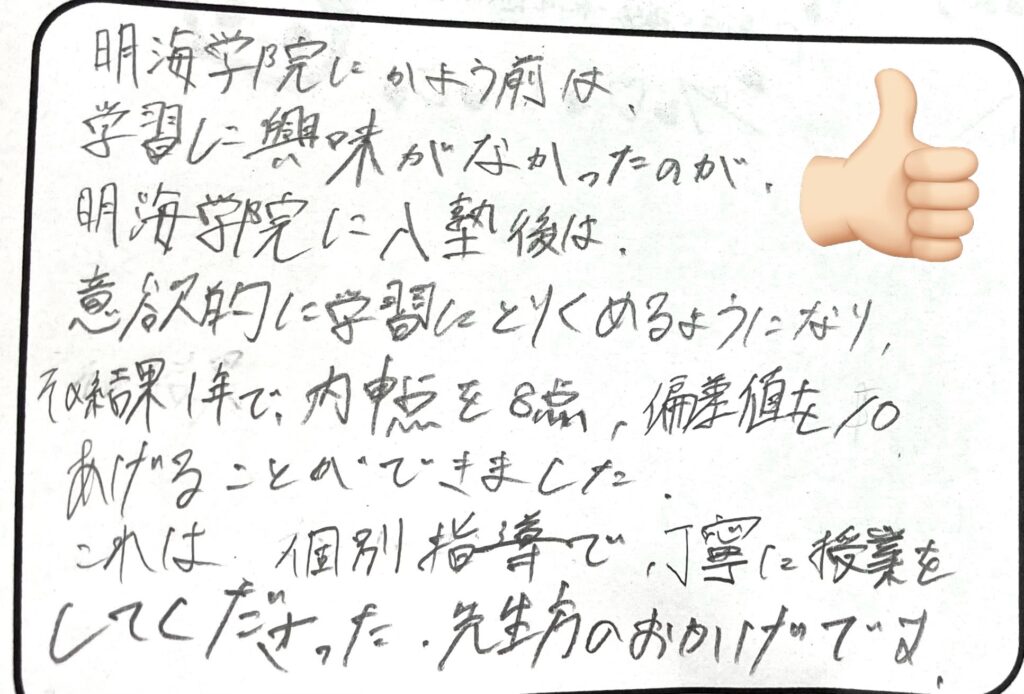 明海学院にかよう前は、
学習に興味がなかったのが、
明海学院に入塾後は、
意欲的に学習にとりくめるようになり、
その結果1年で、内申点を8点、偏差値を10
あげることができました。
これは、個別指導で、丁寧に授業を
してくださった、先生方のおかげです。